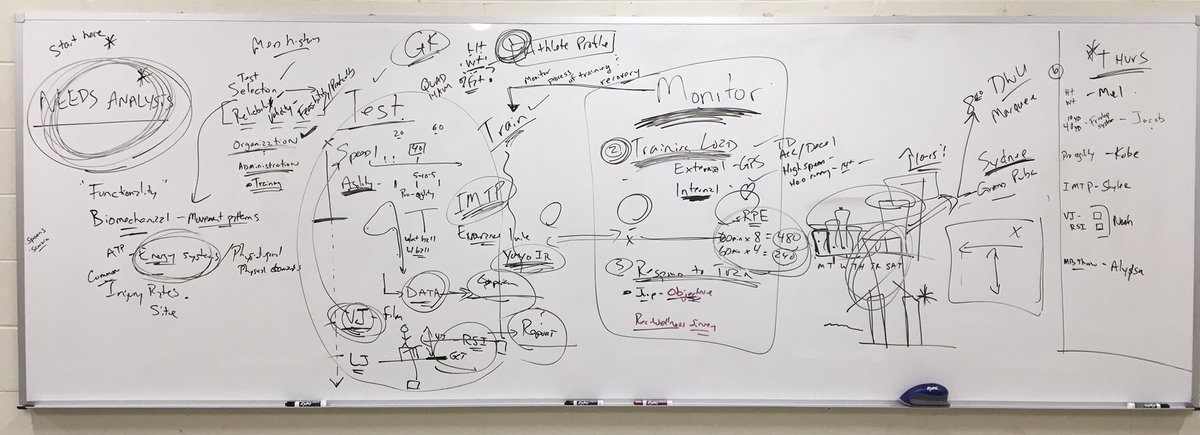 Start here *
NEEDS ANALYSIS
"Functionality"
Biomechanical - Movement patterns
ATP
Energy Systems / Physiological
Physical demands
Common
Injury Rates.
Site
Test
Selection
Reliability Validity
Organization
Administration
Training
GK
QUAD
HAM
Test
20
60
Speed
40
Agility
5-10-5
Pro-agility
T
DATA
VJ - film
LJ
VJ
RSI
GCT
Report
Ht
Wt
1 Athlete Profile
Monitor process of training
recovery
Train
IMTP
Endurance
YoYo IR
Monitor
2 Training Load
External - GPS
Internal -
TD
Acc/Decel
High speed
RPE
60min x 8 = 480
60min x 4 = 240
3 Response to Train
Jump - Objective
Rec-Wellness Survey
M T W TH FR SAT
10-15%
DWU
Marquee
Sydnee
X
6
* THURS
Ht
Wt - Mel
10yd
40yd - Freelap System - Jacob
Pro agility - Kobe
IMTP - Skylee
VJ -
RSI
Noah
MB Throw - Alyssa
EXPO